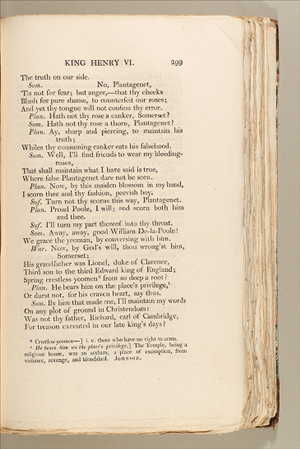 KING HENRY VI. 299
The truth on our side.
Som. No, Plantagenet,
'Tis not for fear; but anger,—that thy cheeks
Blush for pure shame, to counterfeit our roses;
And yet thy tongue will not confess thy error.
Plan. Hath not thy rose a canker, Somerset?
Som. Hath not thy rose a thorn, Plantagenet?
Plan. Ay, sharp and piercing, to maintain his
truth;
Whiles thy consuming canker eats his falsehood.
Som. Well, I'll find friends to wear my bleeding-
roses,
That shall maintain what I have said is true,
Where false Plantagenet dare not be seen.
Plan. Now, by this maiden blossom in my hand,
I scorn thee and thy fashion, peevish boy.
Suf. Turn not thy scorns this way, Plantagenet.
Plan. Proud Poole, I will; and scorn both him
and thee.
Suf. I'll turn my part thereof into thy throat.
Som. Away, away, good William De-la-Poole!
We grace the yeoman, by conversing with him.
War. Now, by God's will, thou wrong'st him,
Somerset;
His grandfather was Lionel, duke of Clarence,
Third son to the third Edward king of England;
Spring crestless yeomen* from so deep a root?
Plan. He bears him on the place's privilege,†
Or durst not, for his craven heart, say thus.
Som. By him that made me, I'll maintain my words
On any plot of ground in Christendom:
Was not thy father, Richard, earl of Cambridge,
For treason executed in our late king's days?
* Crestless yeomen—] i. e. those who have no right to arms.
† He bears him on the place's privilege,] The Temple, being a
religious house, was an asylum, a place of exemption, from
violence, revenge, and bloodshed. JOHNSON.